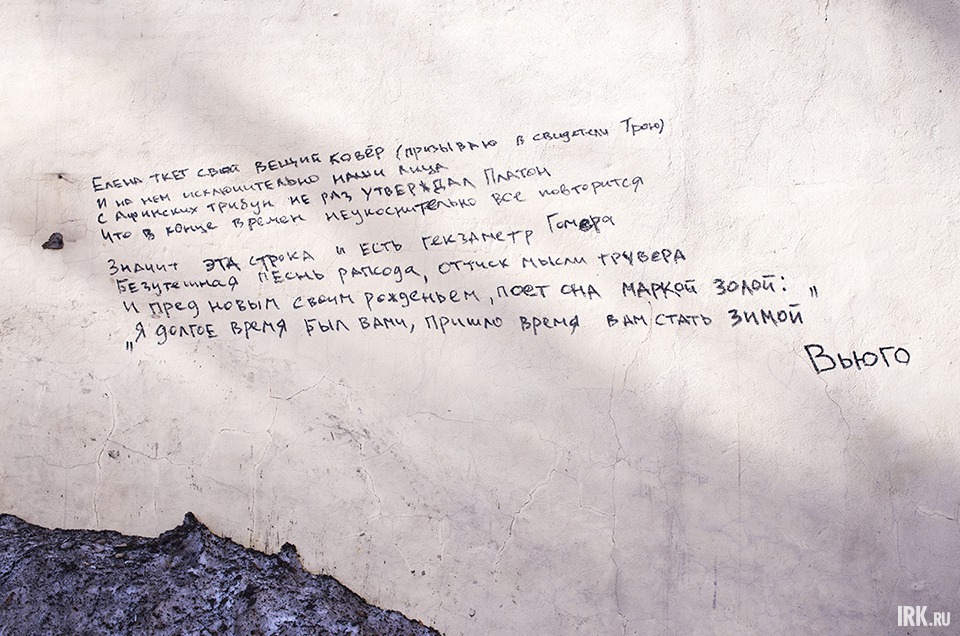 Елена ткет свой вещий ковёр (призываю в свидетели Трою)
И на нем исключительно наши лица
С Афинских трибун не раз утверждал Платон
Что в конце времен неукоснительно все повторится
Значит эта строка и есть гекзаметр Гомера
Безутешная песнь рапсода, оттиск мысли грувера
И пред новым своим рожденьем, поет она маркой золой:
„Я долгое время был вами, пришло время вам стать зимой„
Вьюго
IRK.RU